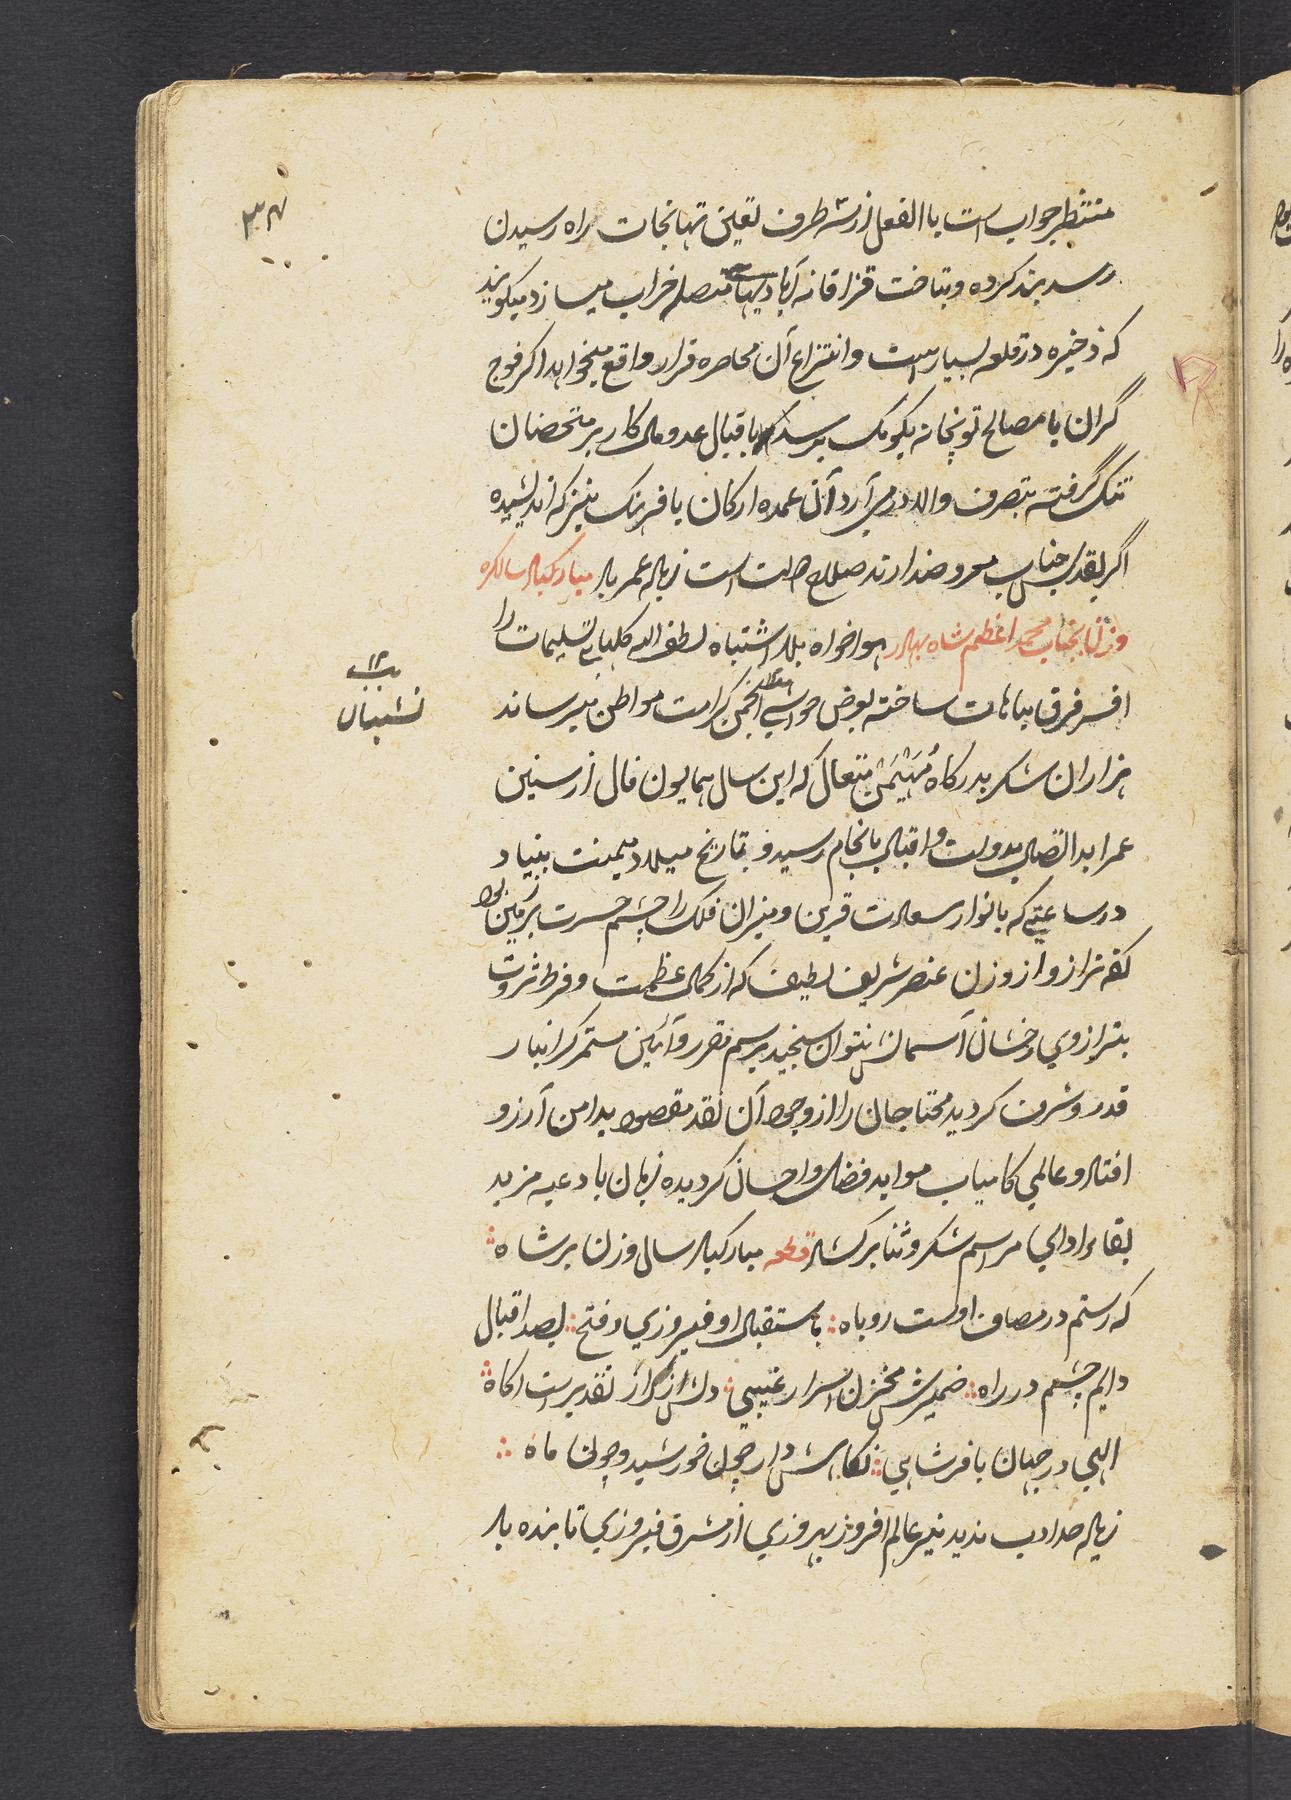 ۳۴
منتظر جواب است بالفعل از سه طرف تعین تهانجات راه رسیدن
رسد بند کرده و بتاخت قزاقانه آبادیهای متصله خراب میسازد میگویند
که ذخیره در قلعه بسیار است و انتزاع آن محاصره قرار واقع میخواهد اگر فوج
گران با مصالح توپخانه بکومک برسد باقبال عدومال کار بر متحصنان
تنگ گرفته بتصرف والا درمی آرد آن عمده ارکان با فرهنگ نیز که اندیشیده
اگر بقدسی جناب معروضدارند صلاح دولت است زیاده عمر باد مبارکباد سالگره
وزن بجناب محمد اعظم شاه بهادر هواخواه بلا اشتباه لطف الله گلهای تسلیمات را
افسر فرق مباهات ساخته بعرض حواشی انجمن کرامت مواطن میرساند
نشیبان
هزاران شکر بدرگاه مهیمن متعال که این سال همایون فال از سنین
عمر ابد اتصال بدولت و اقبال بانجام رسید و بتاریخ میلاد میمنت بنیاد
در ساعتی که بانوار سعادت قرین و میزان فلک را چشم حسرت بر این بود
کفه ترازو از وزن عنصر شریف لطیف که از کمال عظمت و فرط ثروت
بترازوی رخشان آسمانش نتوان سنجید برسم مقرر و آئین مستمر گرانبار
قدر و شرف گردید محتاجان را از وجود آن نقد مقصود بدامن آرزو
افتاد و عالمی کامیاب مواید فضل و احسان گردیده زبان بادعیه مزید
بقا و ادای مراسم شکر و ثنا برکشاد قطعه مبارکباد سال وزن بر شاه
که رستم در مصاف اوست روباه باستقبال او فیروزی و فتح بصد اقبال
دایم چشم در راه ضمیرش مخزن اسرار غیبی دلش از راز تقدیر است آگاه
الهی در جهان با فر شاهی نگاهش دار چون خورشید و چون ماه
زیاده حد ادب ندید نیر عالم افروز بهروزی از مشرق فیروزی تابنده باد